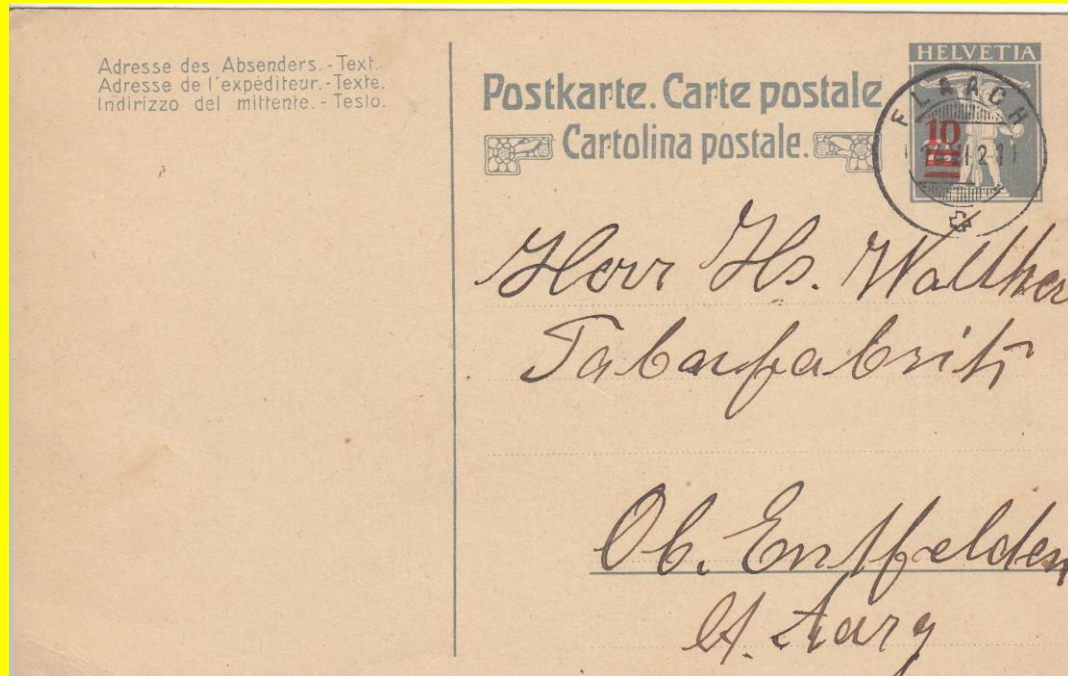 Adresse des Absenders. - Text.
Adresse de l'expéditeur. - Texte.
Indirizzo del mittente. - Testo.
Postkarte. Carte postale
Cartolina postale.
HELVETIA
FLAACH
10
Herr Hs. Walther
Tabakfabrik
Ob. Entfelden
Aarg